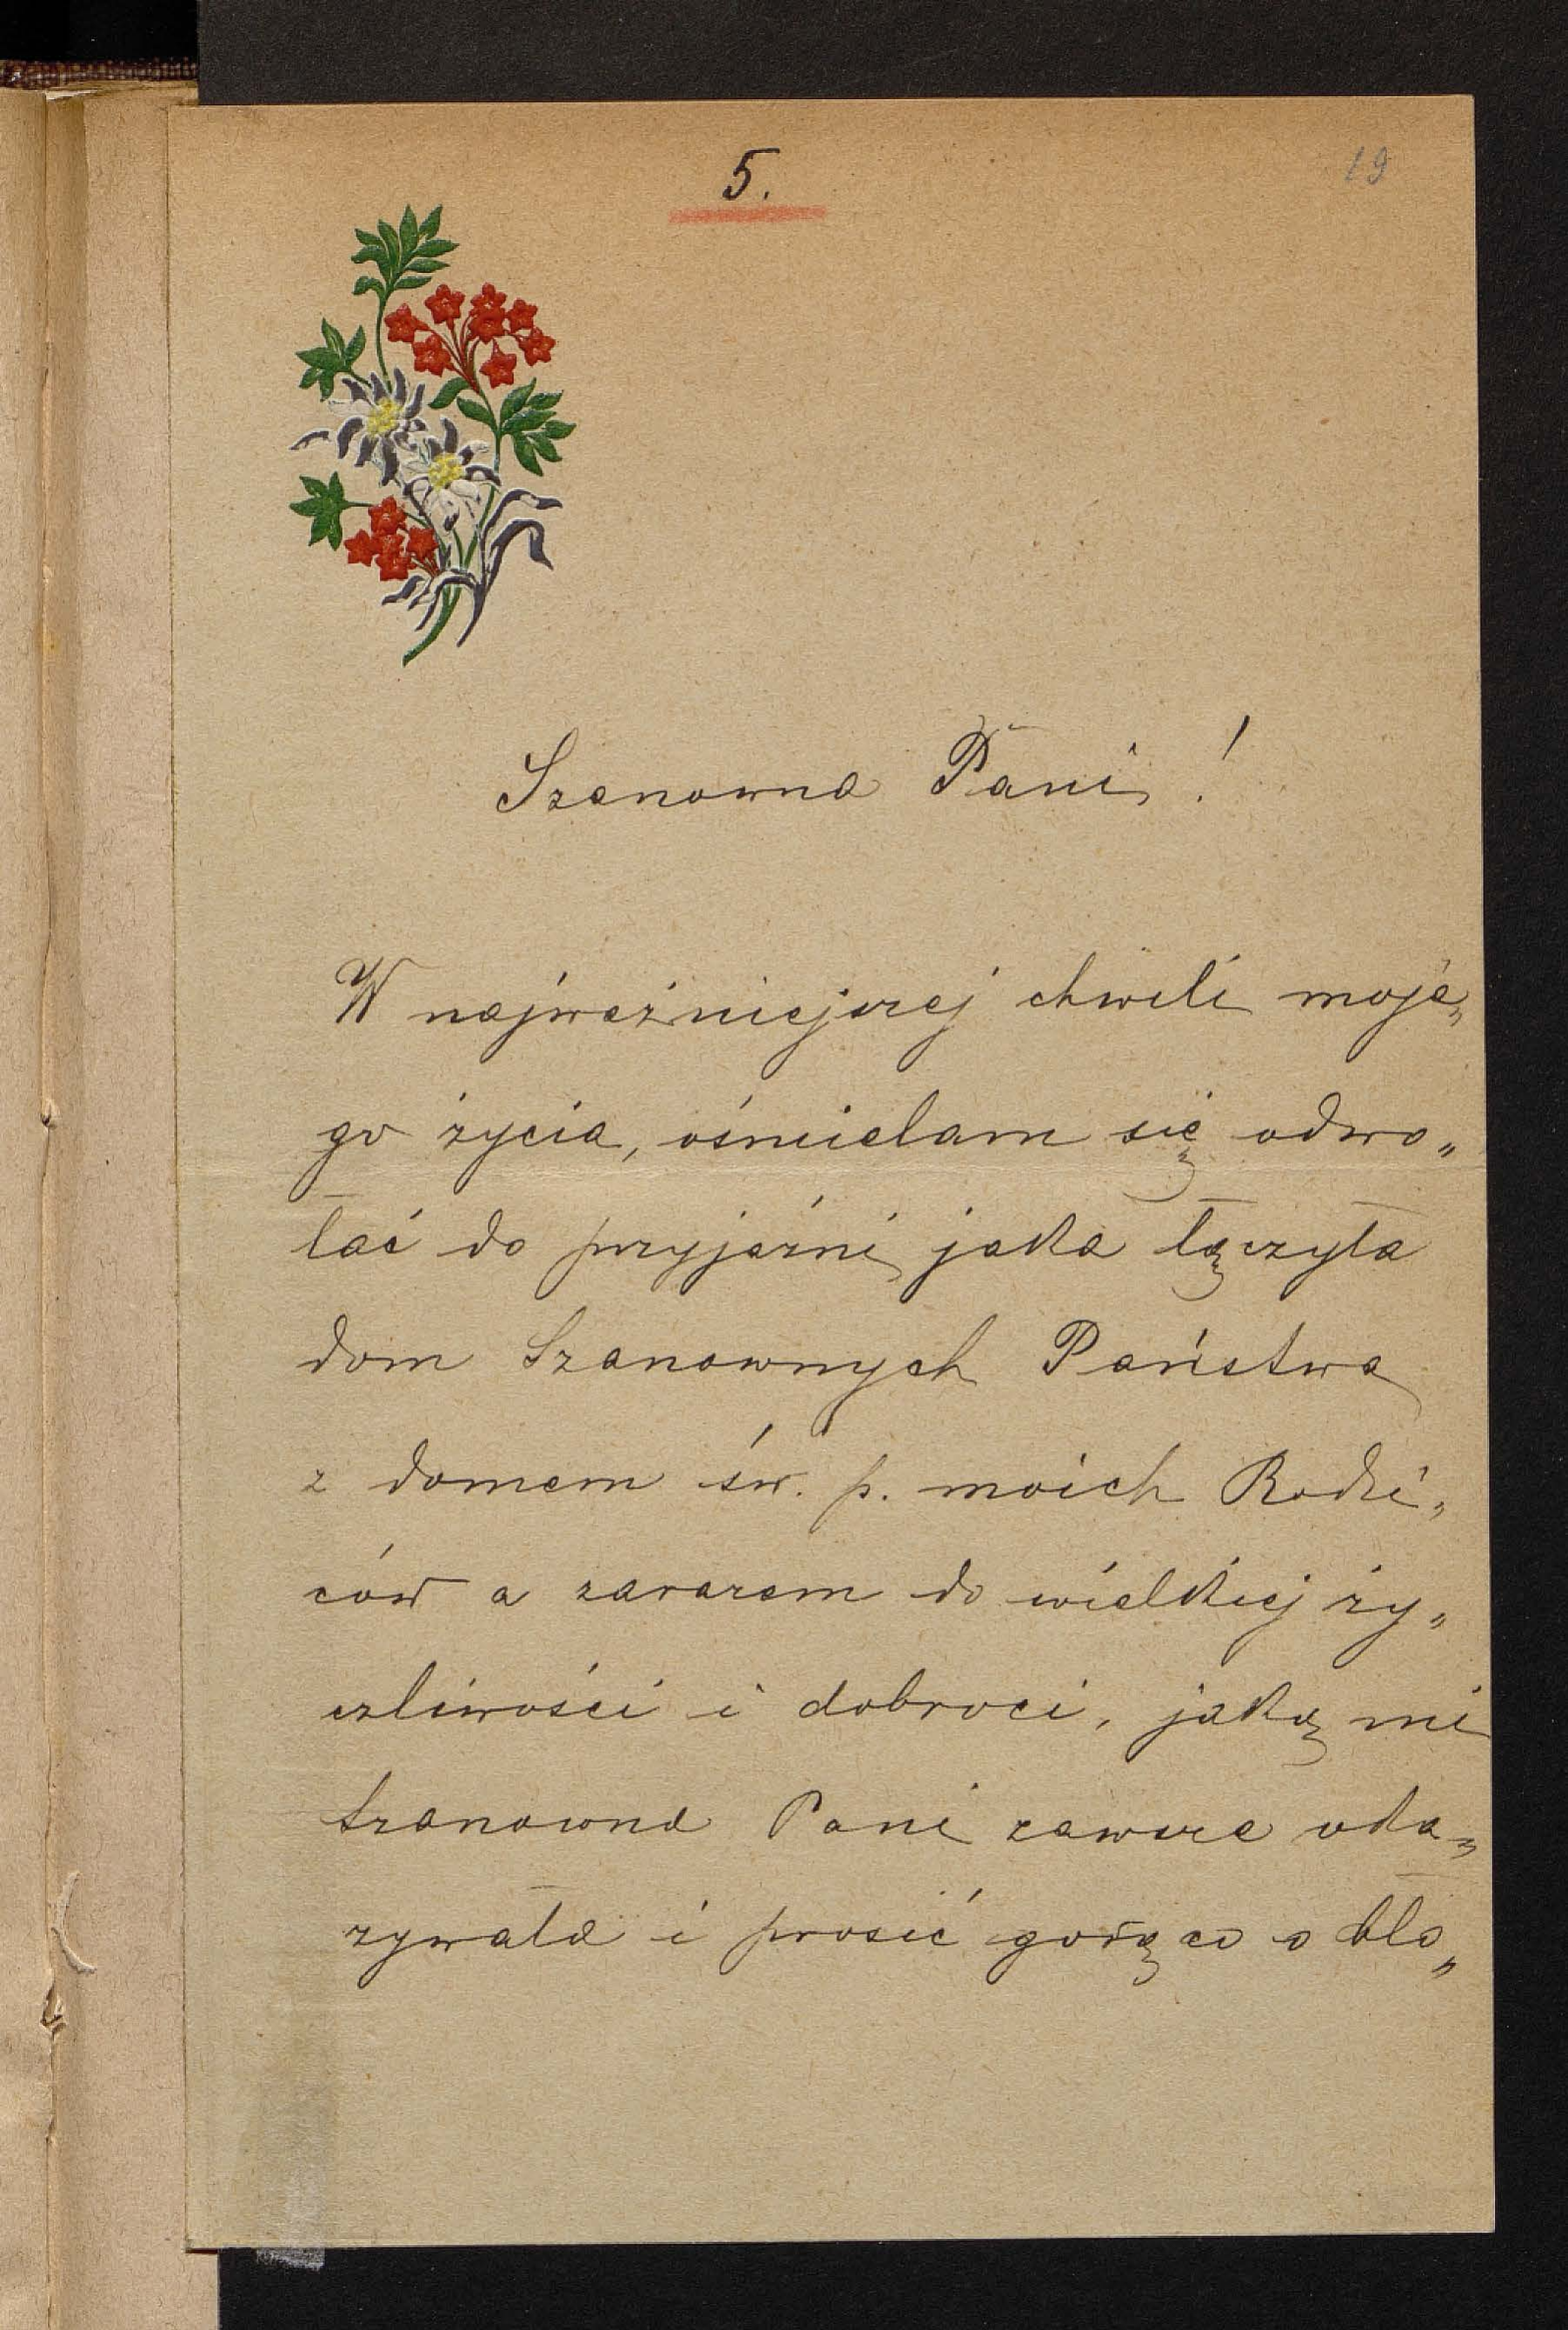 5.
19
Szanowna Pani !
W najważniejszej chwili moje„
go życia, ośmielam się odwo„
łać do przyjaźni jaka łączyła
dom Szanownych Państwa
z domem św. p. moich Rodzi„
ców a zarazem do wielkiej ży„
czliwości i dobroci, jaką mi
Szanowna Pani zawsze oka„
zywała i prosić gorąco o bło„